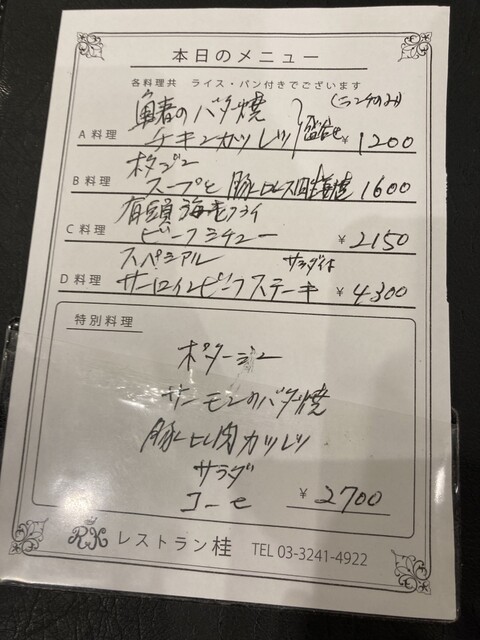 本日のメニュー
各料理共 ライス・パン付きでございます
(ランチのみ)
のバタ焼
A料理 チキンカツレツ 盛合せ ¥1200
ポタジュー
B料理 スープと 豚ヒレ 1600
有頭海老フライ
C料理 ビーフシチュー ¥2150
スペシアル サラダ付
D料理 サーロインビーフステーキ ¥4300
特別料理
ポタージュー
サーモンのバタ焼
豚ヒレ肉カツレツ
サラダ
コーヒ ¥2700
RK レストラン桂 TEL 03-3241-4922